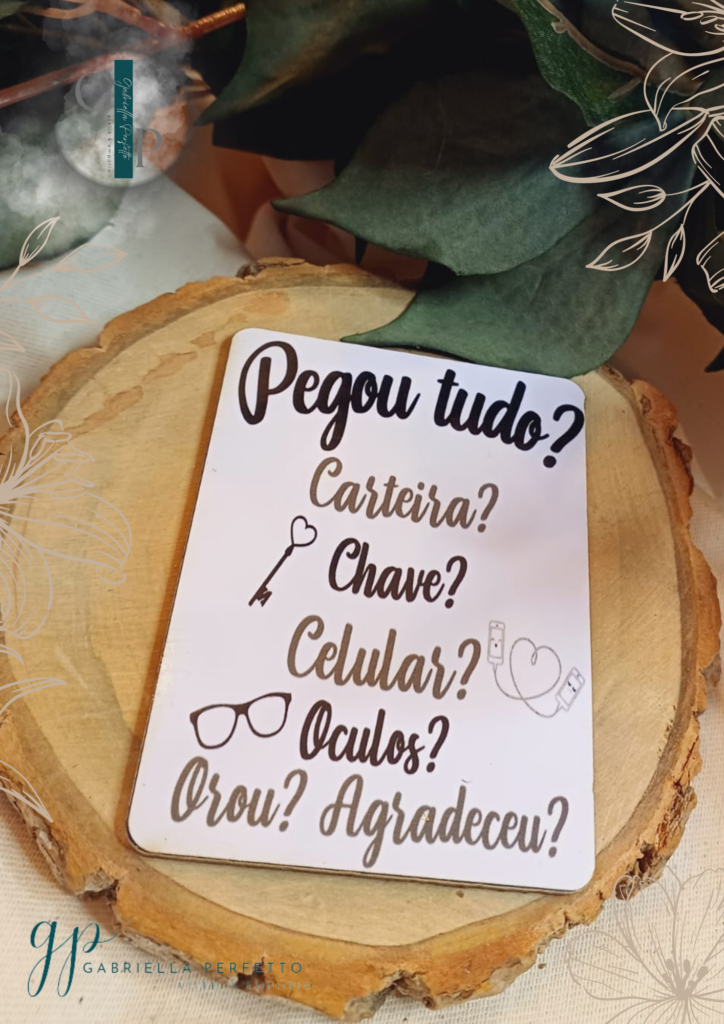 Gabriella Perfetto
Pegou tudo?
Carteira?
Chave?
Celular?
Oculos?
Orou? Agradeceu?
gp
GABRIELLA PERFETTO